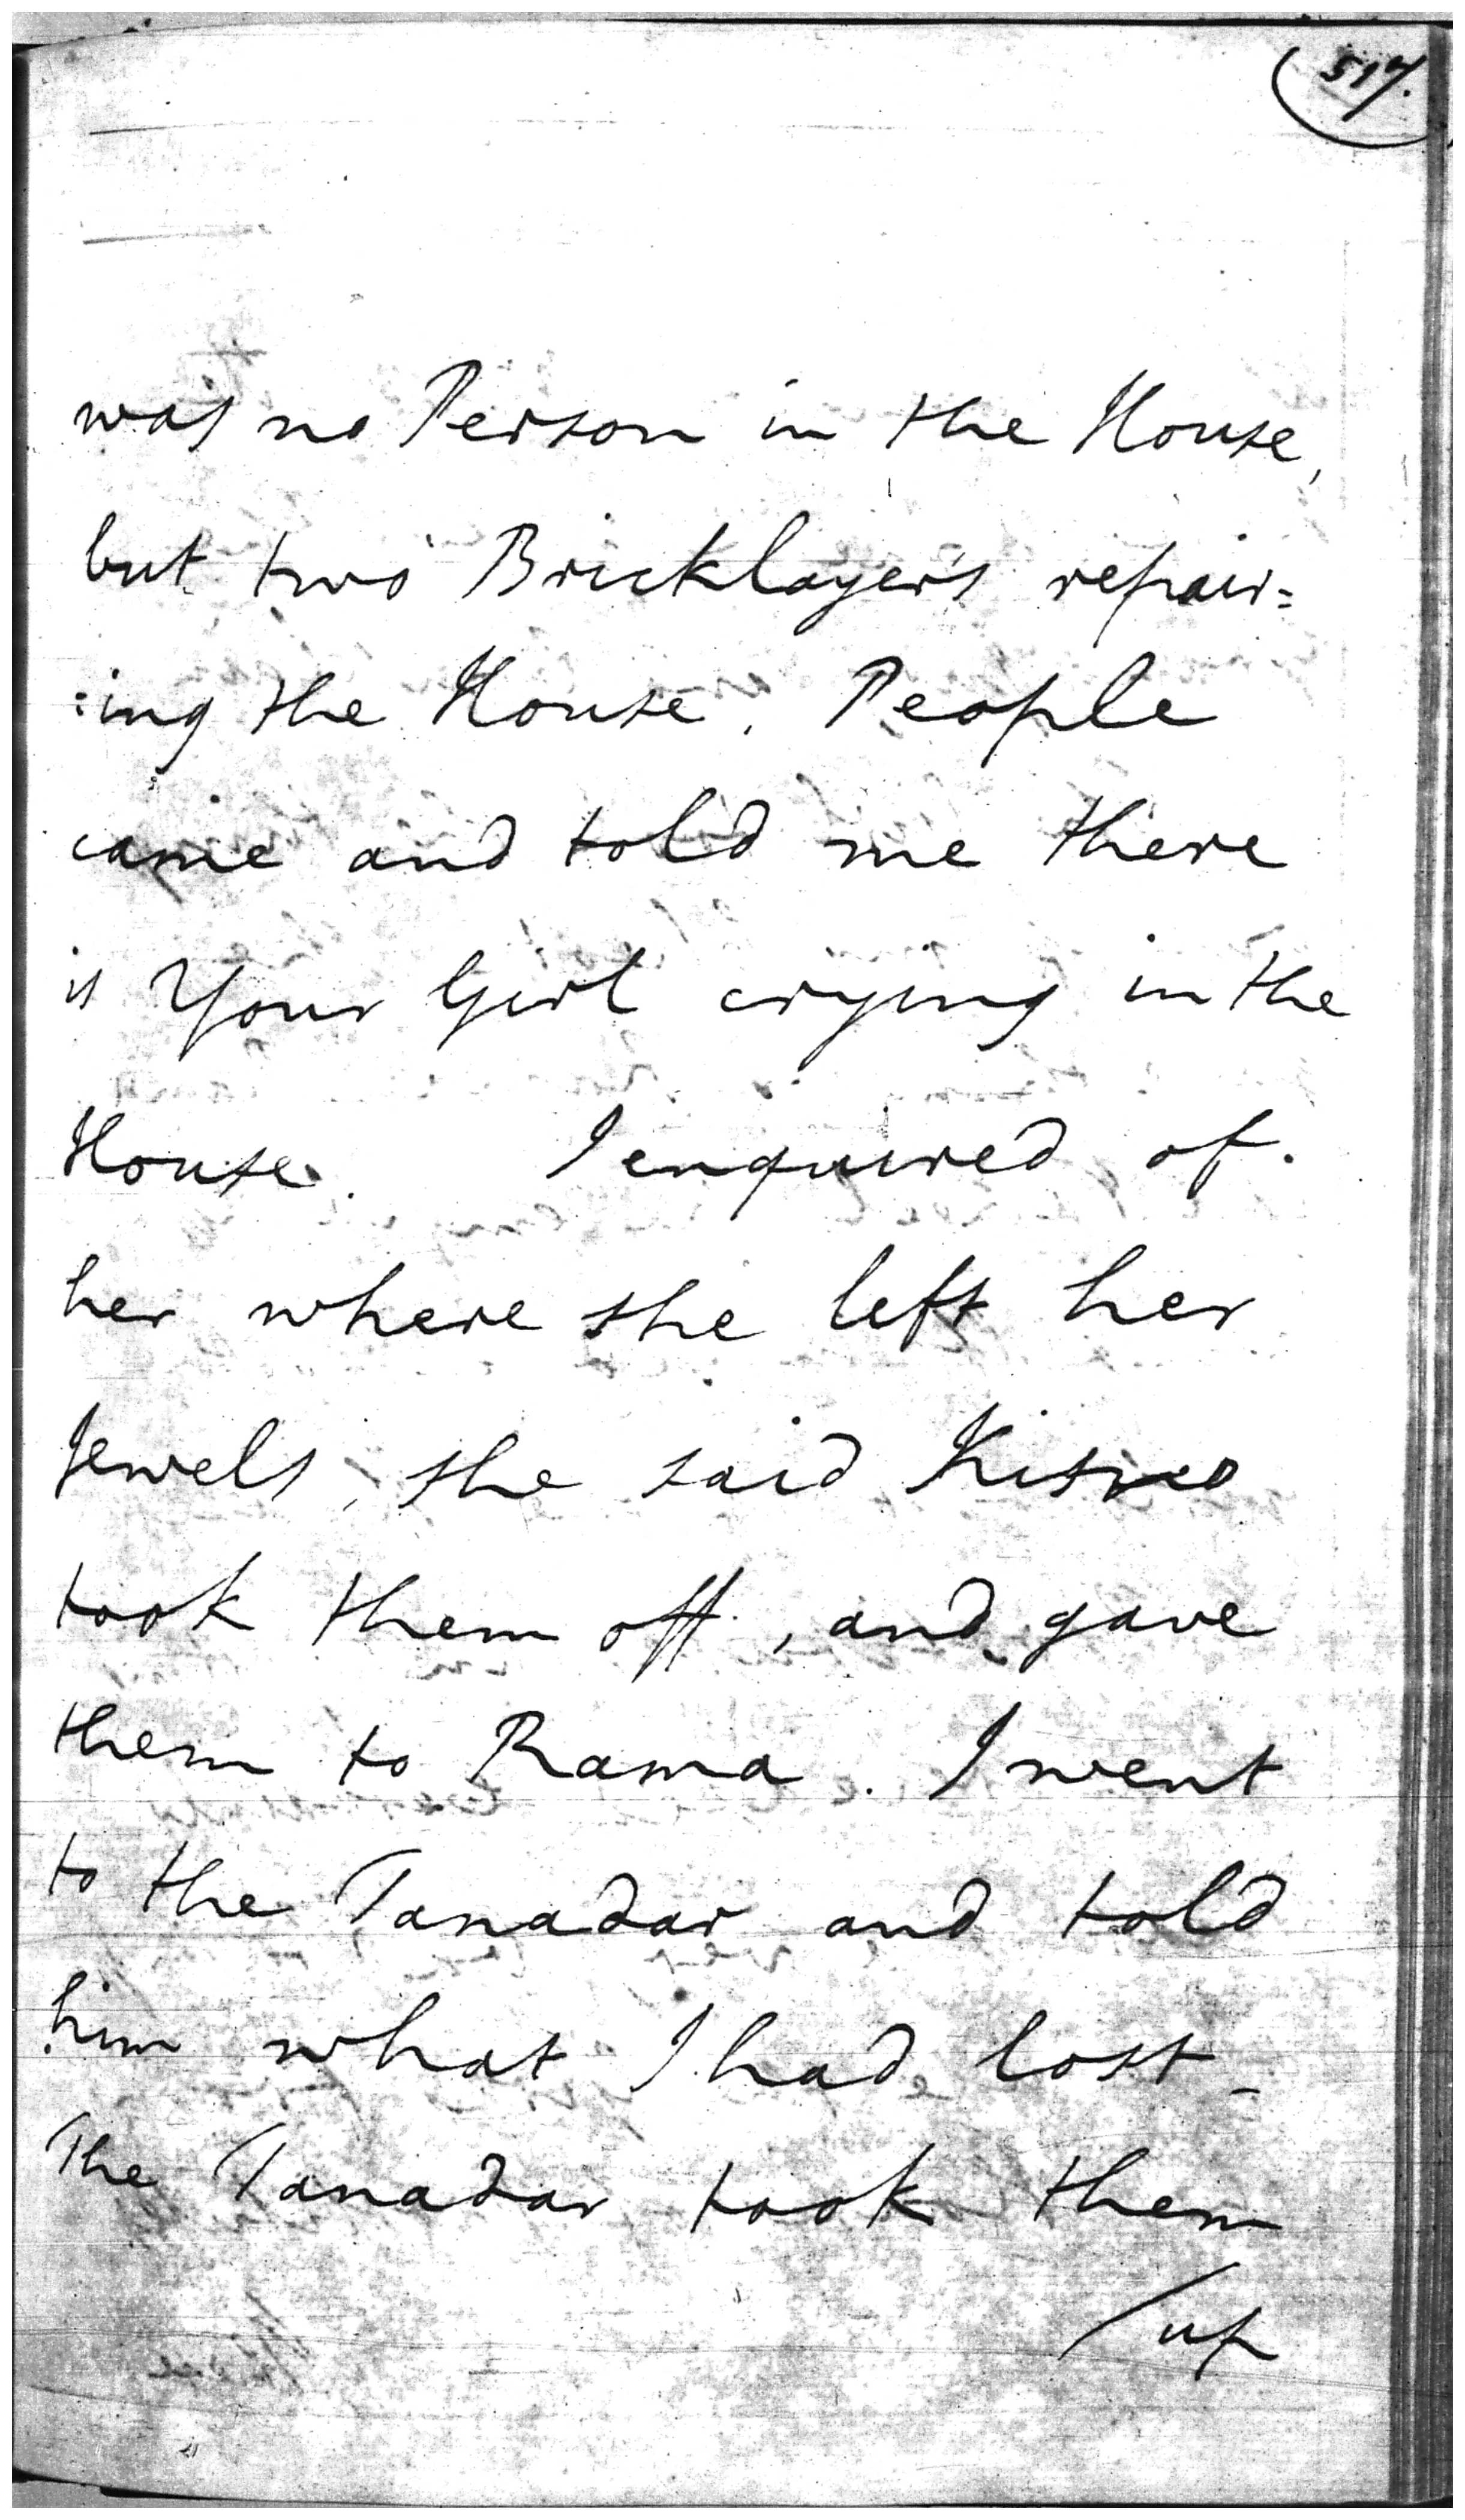 517.
was no Person in the House,
but two Bricklayers repair=
:ing the House. People
came and told me there
is Your Girl crying in the
House. I enquired of
her where she left her
Jewels, she said
took them off, and gave
them to Rama. I went
to the Tanadar and told
him what I had lost_
The Tanadar took them
/up